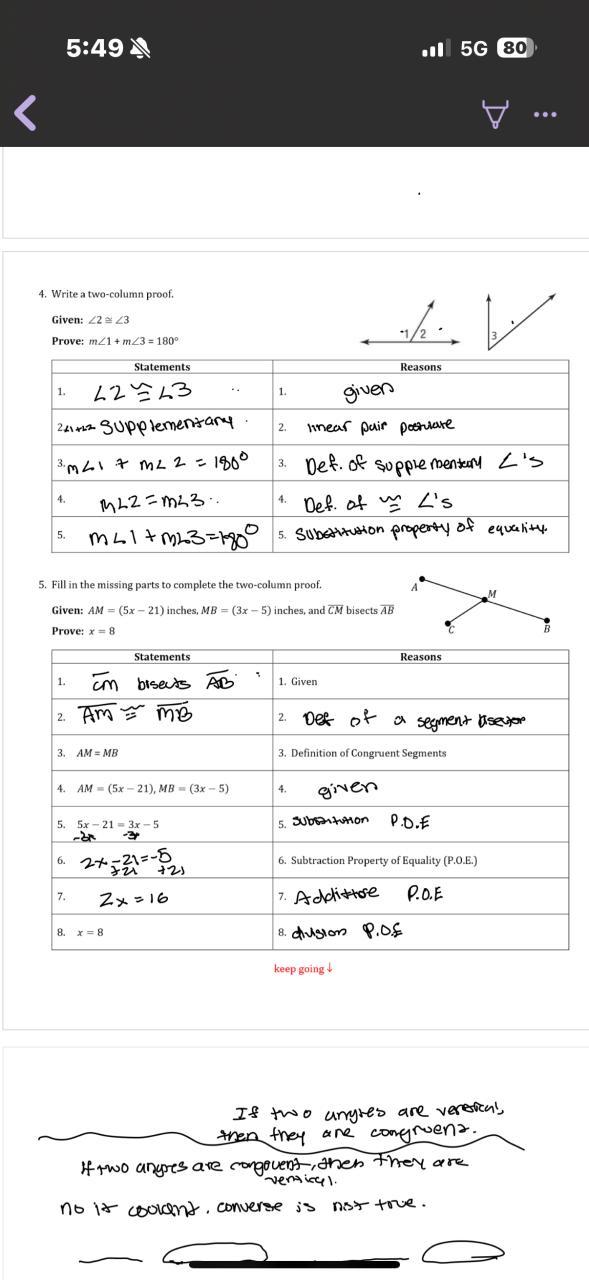 5:49
5G 80
4. Write a two-column proof.
Given: ∠2 ≅ ∠3
Prove: m∠1 + m∠3 = 180°
1 2
3
Statements Reasons
1. ∠2 ≅ ∠3 1. given
2. ∠1+∠2 Supplementary 2. linear pair postulate
3. m∠1 + m∠2 = 180° 3. Def. of supplementary ∠'s
4. m∠2 = m∠3 4. Def. of ≅ ∠'s
5. m∠1 + m∠3 = 180° 5. Substitution property of equality.
5. Fill in the missing parts to complete the two-column proof.
Given: AM = (5x − 21) inches, MB = (3x − 5) inches, and CM bisects AB
Prove: x = 8
A M
C B
Statements Reasons
1. CM bisects AB 1. Given
2. AM ≅ MB 2. Def of a segment bisector
3. AM = MB 3. Definition of Congruent Segments
4. AM = (5x − 21), MB = (3x − 5) 4. given
5. 5x − 21 = 3x − 5 5. Substitution P.O.E
-3x -3x
6. 2x -21 = -5 6. Subtraction Property of Equality (P.O.E.)
+21 +21
7. 2x = 16 7. P.O.E
8. x = 8 8. division P.O.E
keep going ↓
If two angles are vertical,
then they are congruent.
If two angles are congruent, then they are
vertical.
no it converse is not true.